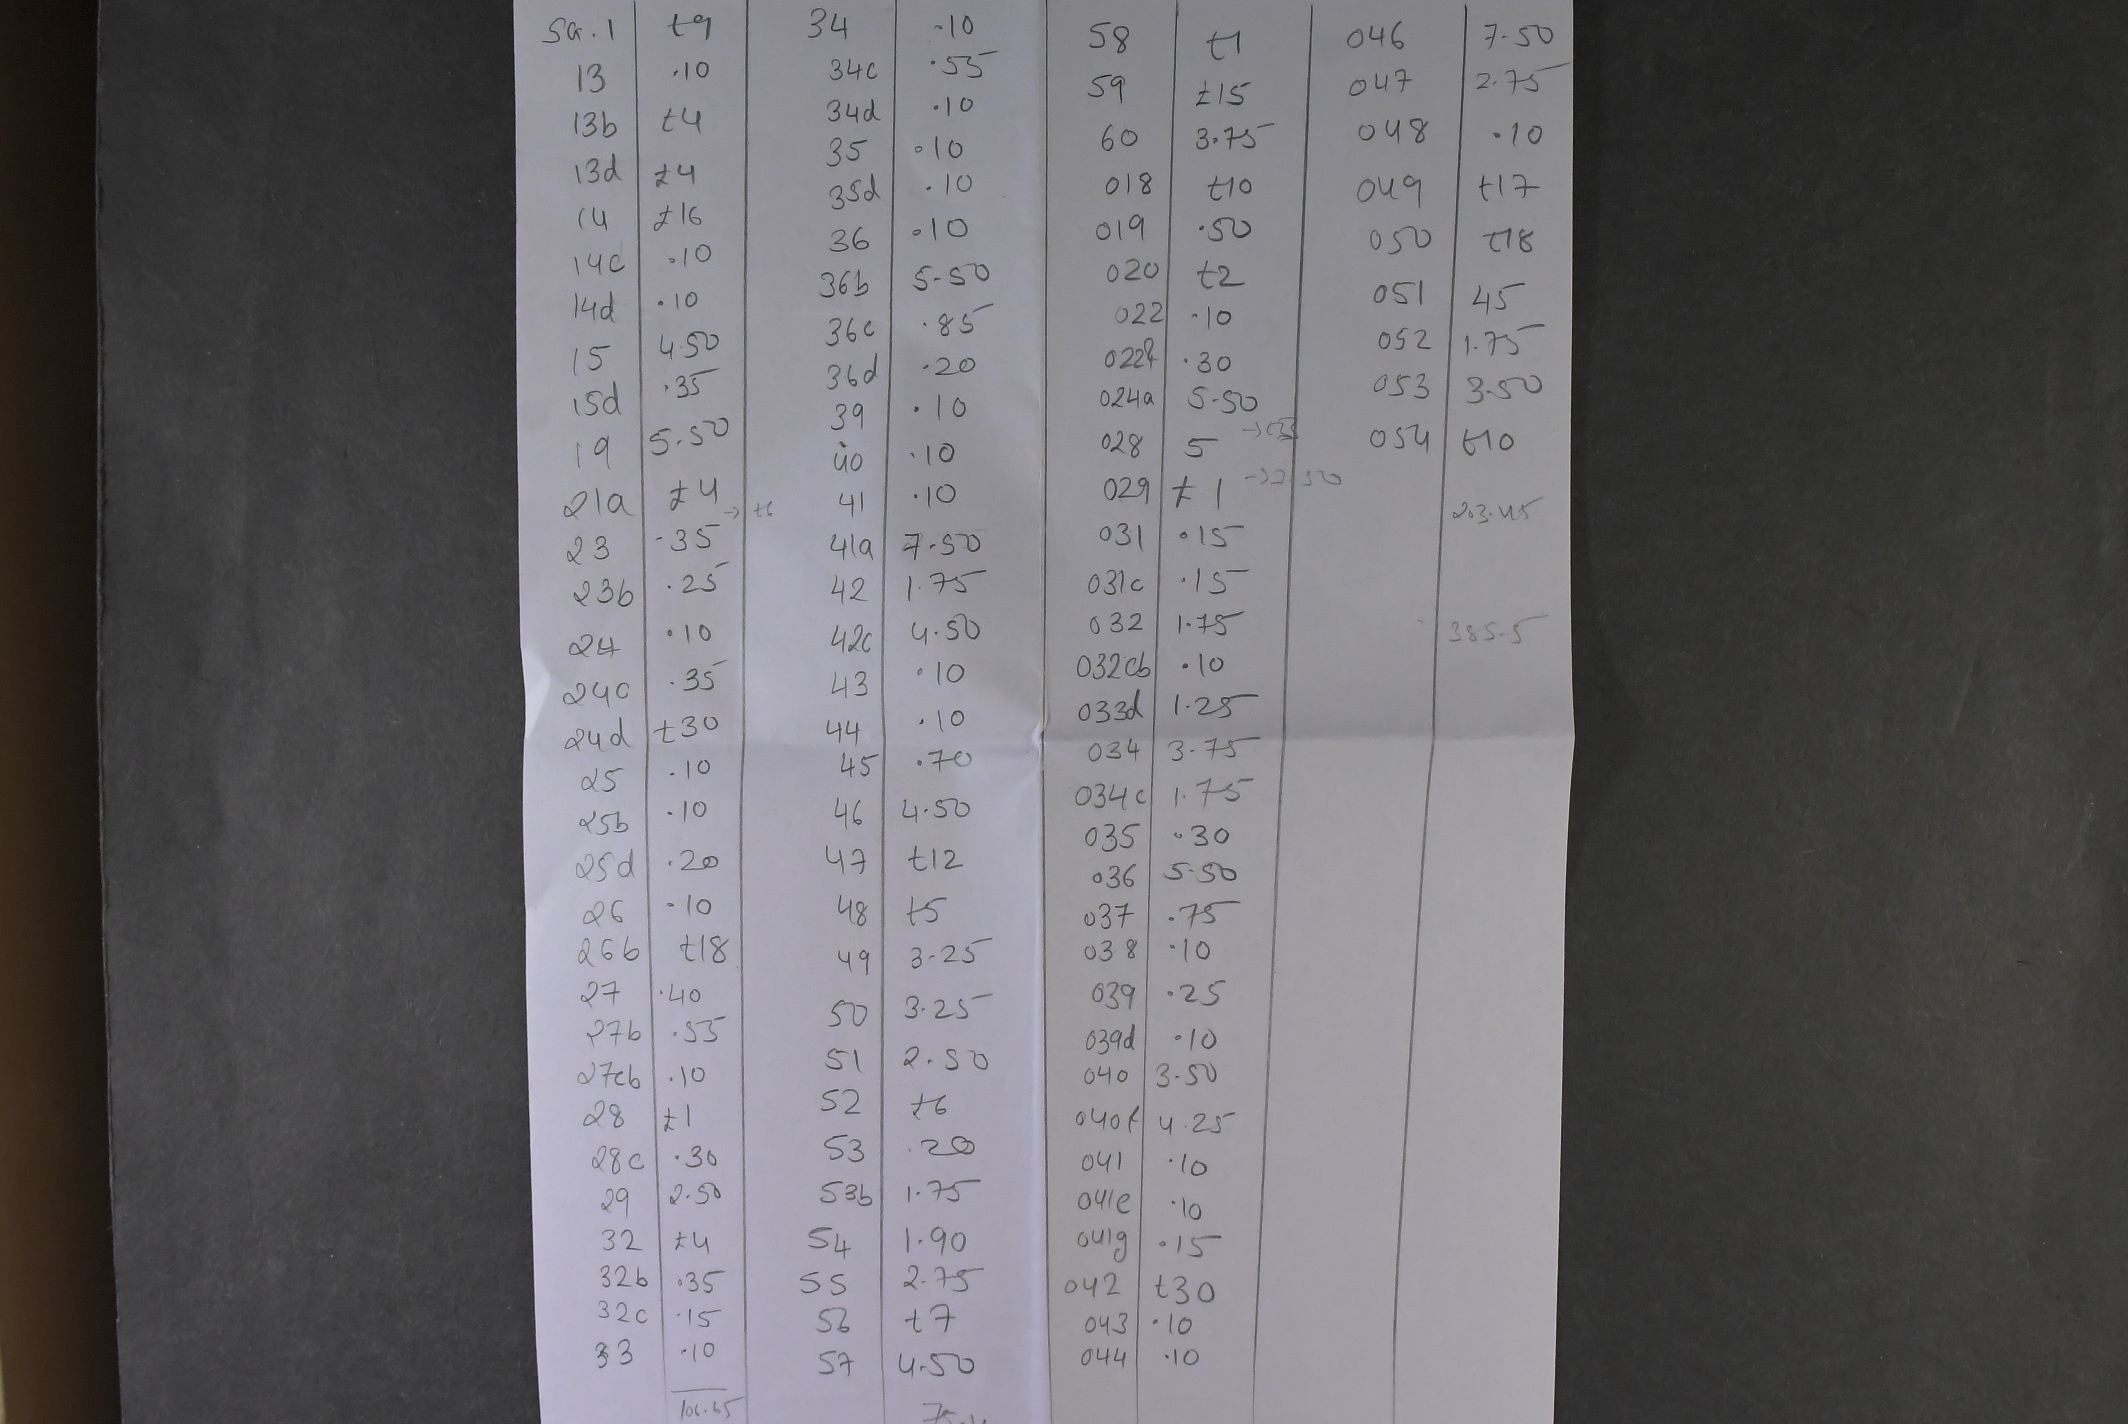 SG.1 £9
13 .10
13b £4
13d £4
14 £16
14c .10
14d .10
15 4.50
15d .35
19 5.50
21a £4 → £6
23 .35
23b .25
24 .10
24c .35
24d £30
25 .10
25b .10
25d .20
26 .10
26b £18
27 .40
27b .55
27cb .10
28 £1
28c .30
29 2.50
32 £4
32b .35
32c .15
33 .10
106.65
34 .10
34c .55
34d .10
35 .10
35d .10
36 .10
36b 5.50
36c .85
36d .20
39 .10
40 .10
41 .10
41a 7.50
42 1.75
42c 4.50
43 .10
44 .10
45 .70
46 4.50
47 £12
48 £5
49 3.25
50 3.25
51 2.50
52 £6
53 .20
53b 1.75
54 1.90
55 2.75
56 £7
57 4.50
58 £1
59 £15
60 3.75
018 £10
019 .50
020 £2
022 .10
022f .30
024a 5.50
028 5 →
029 £1 → 2.50
031 .15
031c .15
032 1.75
032cb .10
033d 1.25
034 3.75
034c 1.75
035 .30
036 5.50
037 .75
038 .10
039 .25
039d .10
040 3.50
040f 4.25
041 .10
041e .10
041g .15
042 £30
043 .10
044 .10
046 7.50
047 2.75
048 .10
049 £17
050 £18
051 45
052 1.75
053 3.50
054 £10
203.45
385.5